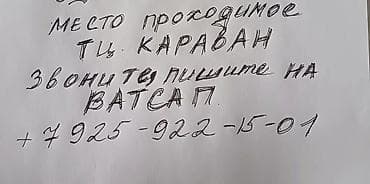 МЕСТО проходимое
ТЦ. КАРАВАН
Звоните, пишите на
ВАТСАП.
+7925-922-15-01